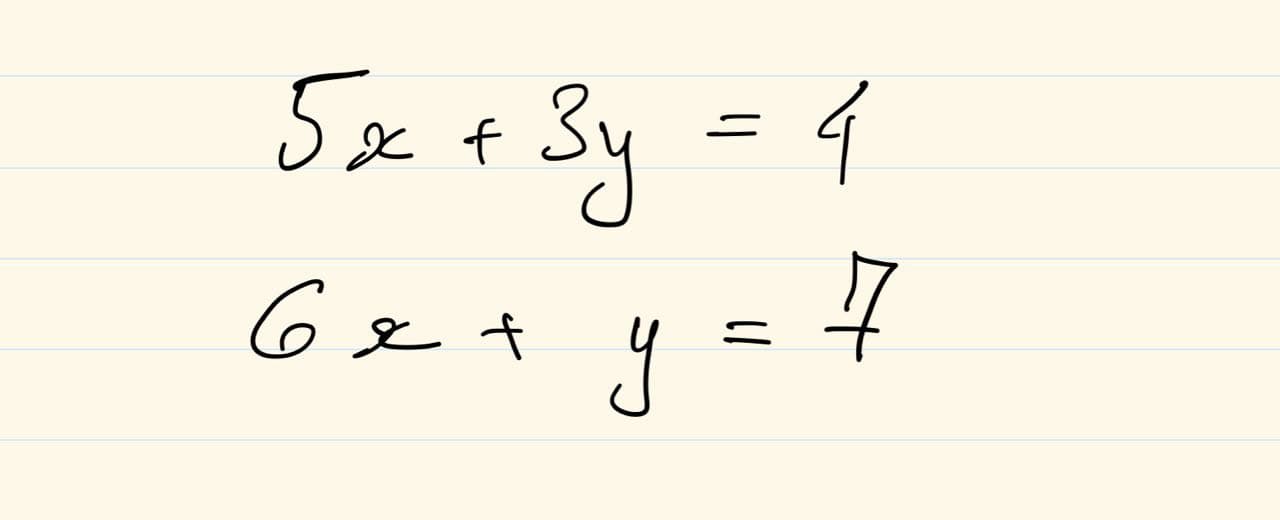 5x + 3y = 4
6x + y = 7